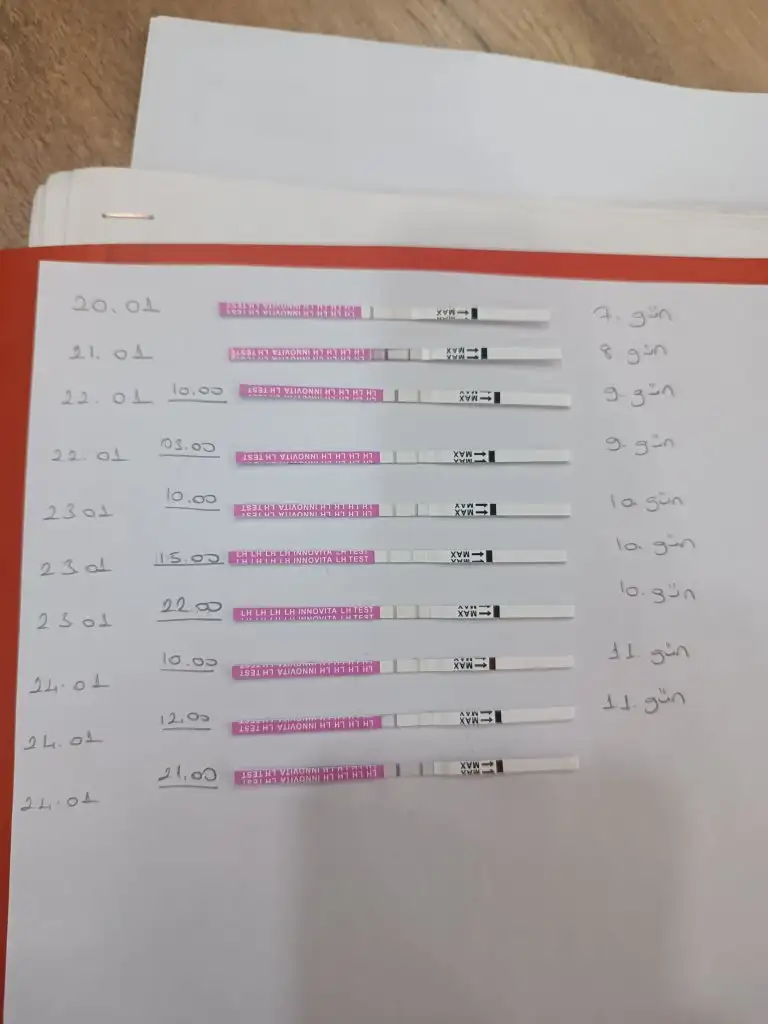 20.01 LH LH LH LH INNOVITA LH TEST MAX 7. gün
21.01 LH LH LH LH INNOVITA LH TEST MAX 8 gün
22.01 10.00 LH LH LH LH INNOVITA LH TEST MAX 9 gün
22.01 03.00 LH LH LH LH INNOVITA LH TEST MAX 9. gün
23 01 10.00 LH LH LH LH INNOVITA LH TEST MAX 10. gün
23 01 15.00 LH LH LH LH INNOVITA LH TEST MAX 10. gün
23 01 22.00 LH LH LH LH INNOVITA LH TEST MAX 10. gün
24.01 10.00 LH LH LH LH INNOVITA LH TEST MAX 11. gün
24.01 12.00 LH LH LH LH INNOVITA LH TEST MAX 11. gün
24.01 21.00 LH LH LH LH INNOVITA LH TEST MAX